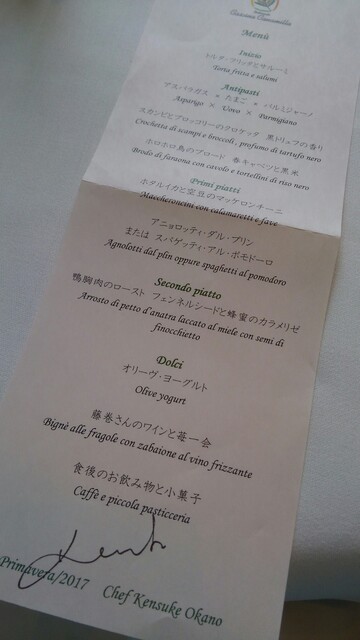 Menù
Inizio
トルタ・フリッタとサルーミ
Torta fritta e salumi
Antipasti
アスパラガス × たまご × パルミジャーノ
Asparigo × Uovo × Parmigiano
スカンピとブロッコリーのクロケッタ 黒トリュフの香り
Crochetta di scampi e broccoli, profumo di tartufo nero
ホロホロ鳥のブロード 春キャベツと黒米
Brodo di faraona con cavolo e tortellini di riso nero
Primi piatti
ホタルイカと空豆のマッケロンチーニ
Maccheroncini con calamaretti e fave
アニョロッティ・ダル・プリン
または スパゲッティ・アル・ポモドーロ
Agnolotti dal plin oppure spaghetti al pomodoro
Secondo piatto
鴨胸肉のロースト フェンネルシードと蜂蜜のカラメリゼ
Arrosto di petto d'anatra laccato al miele con semi di
finocchietto
Dolci
オリーヴ・ヨーグルト
Olive yogurt
藤巻さんのワインと苺一会
Bignè alle fragole con zabaione al vino frizzante
食後のお飲み物と小菓子
Caffè e piccola pasticceria
Primavera/2017 Chef Kensuke Okano